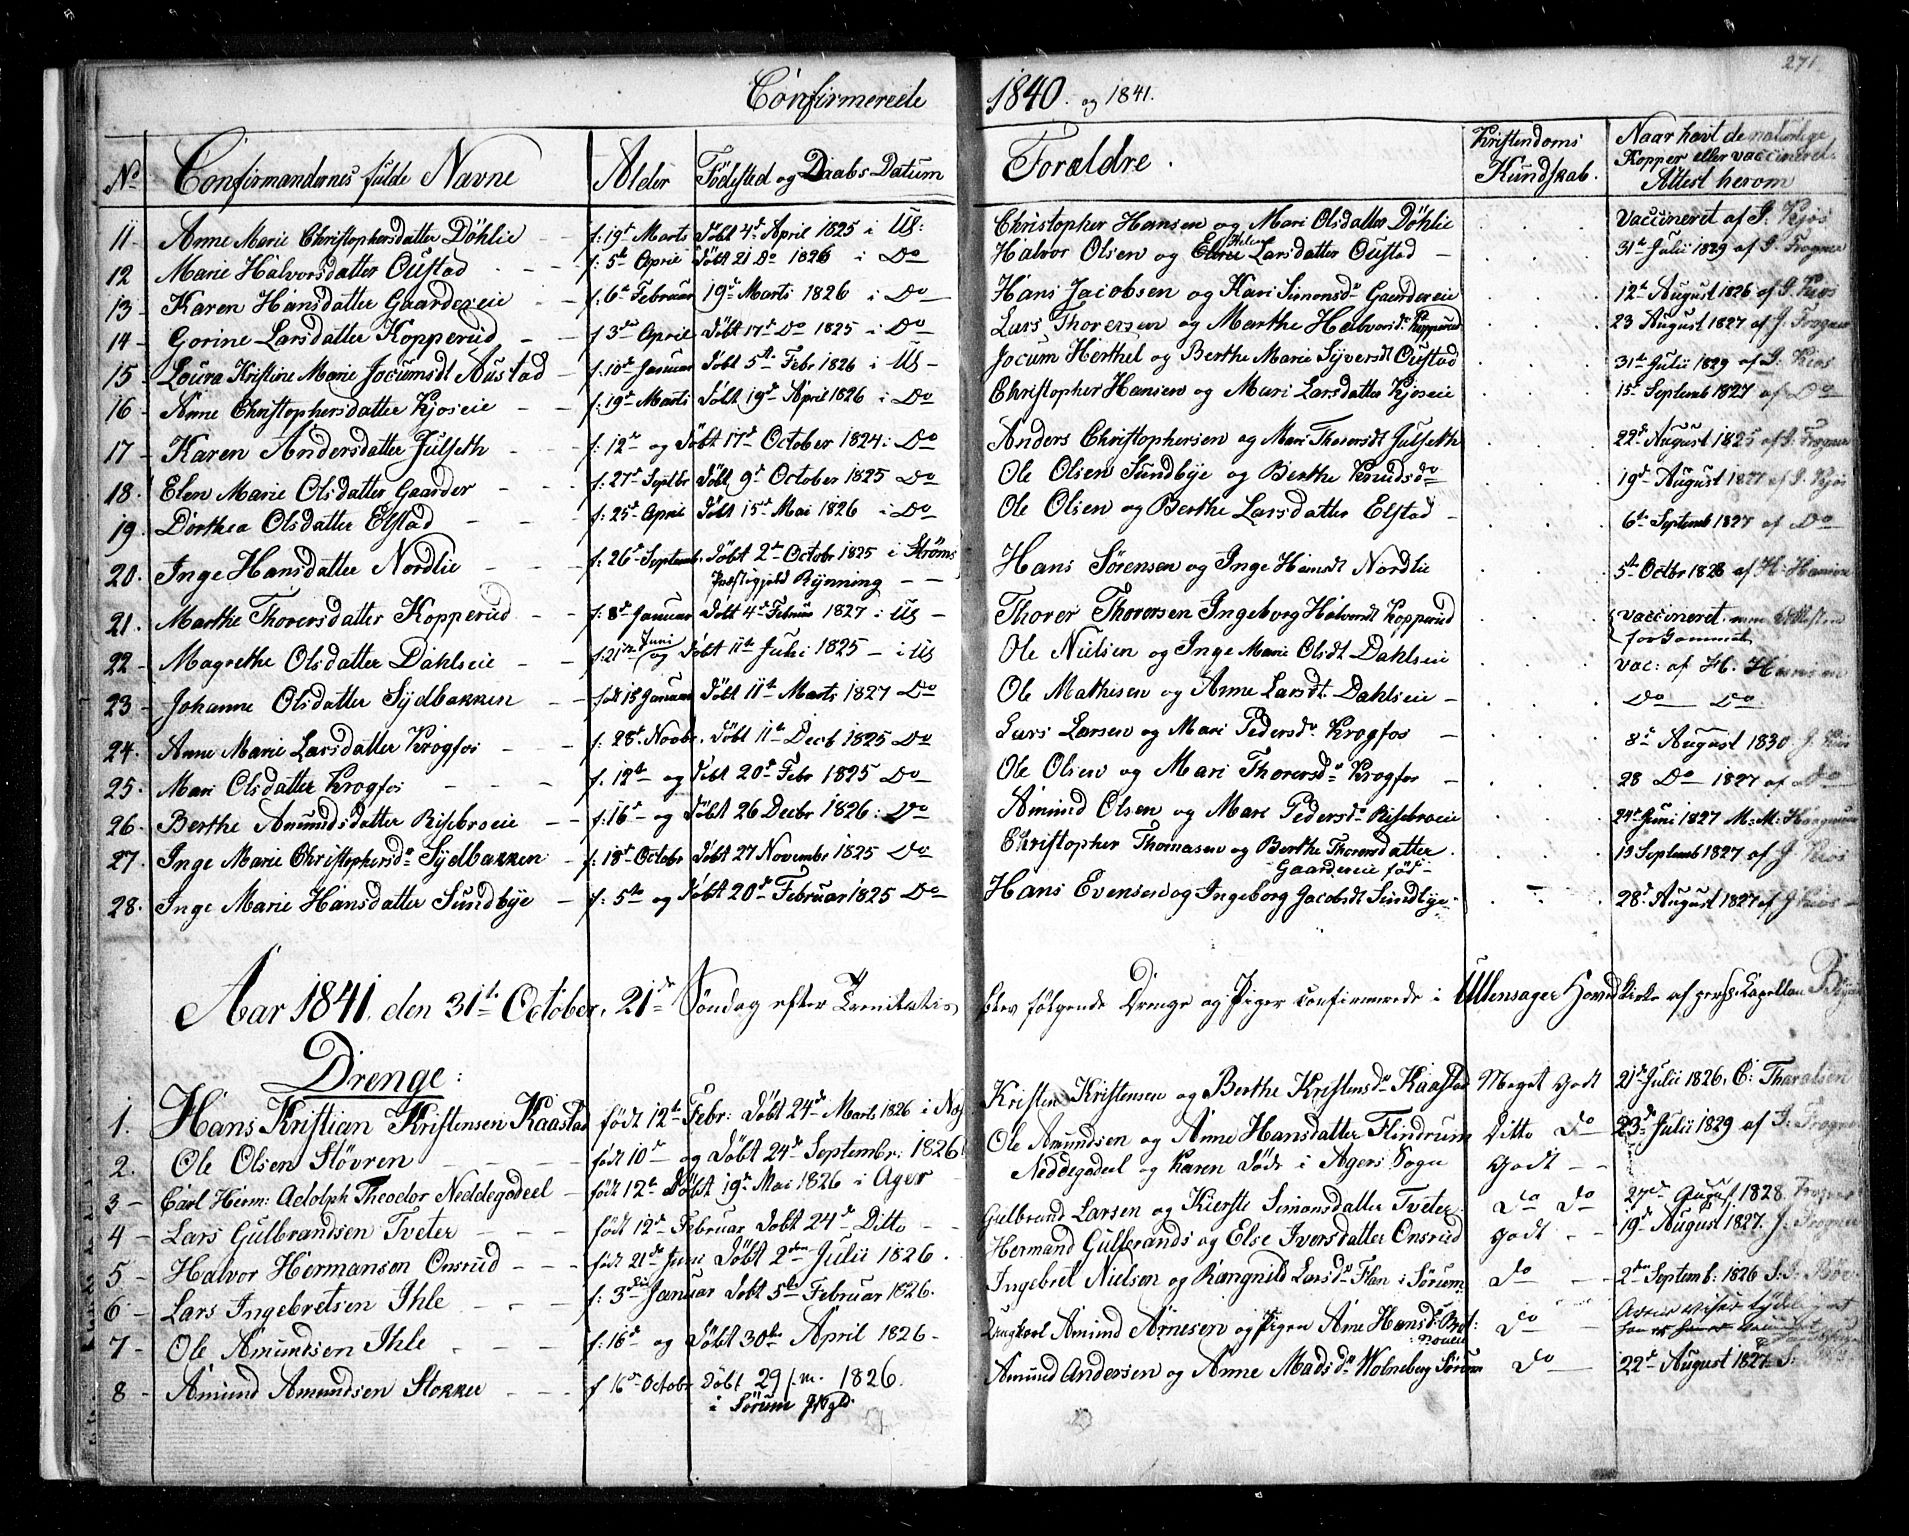 271
Confirmerede 1840. og 1841.
No Confirmandernes fulde Navne Alder Födested og Daabs Datum Forældre. Kristendoms Kundskab. Naar havt de naturlige Kopper eller vaccineret. Attest herom
11 - Anne Marie Christophersdatter Döhlie - - f: 19d Marts Döbt 4d April 1825 i Us: Christopher Hansen og Mari Olsdatter Döhlie . . . Vaccineret af J. Kjos
12 - Marie Halvorsdatter Oustad - - - f: 5t April Döbt 21 Do 1826 i Do Halvor Olsen og Larsdatter Oustad - . . . 31t Julii 1829 af J. Frogner
13 - Karen Hansdatter Gaardereie - - f: 6t Februar 19d Marts 1826 i Do Hans Jacobsen og Kari Simonsdr Gaardereie . . . 12t August 1826 af J. Kjos
14 - Gorine Larsdatter Kopperud - f 3de April Döbt 17d Do 1825 i Do Lars Thorersen og Marthe Halvorsdr Kopperud . . . 23 August 1827 af J. Frogner
15 - Loura Kristine Marie Jocumsdt Austad - f: 10d Januar Döbt 5te Febr 1826 i Us - Jocum Herthel og Berthe Marie Syversdt Oustad . . . 31t Julii 1829 af J. Kios
16 - Anne Christophersdatter Kjoseie - - f: 19d Marts Döbt 19d April 1826 i Do Christopher Hansen og Mari Larsdatter Kjoseie . . . 15d Septemb 1827 af Do
17 - Karen Andersdatter Julseth - - f: 12te og Döbt 17d October 1824: Do Anders Christophersen og Mari Thorersdt Julseth . . . 22d August 1825 af J. Frogner
18. Elen Marie Olsdatter Gaarder - - f: 27d Septbr Döbt 9d October 1825 Do Ole Olsen Sundbye og Berthe Knudsdr . . . 19d August 1827 af J. Kjos
19. Dorthea Olsdatter Elstad - - - f: 25d April Döbt 15d Mai 1826 i Do Ole Olsen og Berthe Larsdatter Elstad - . . . 6te Septemb 1827 af Do
20. Inge Hansdatter Nordlie - - - f: 26d Septemb. Döbt 2den Octobr 1825 i Ströms Præstegjeld Rynning - - Hans Sörensen og Inge Hansdt Nordlie . . . 5te Octbr 1828 af H. Hansen
21. Marthe Thorersdatter Kopperud - - f: 8d Januar Döbt 4d Februar 1827 i Us - Thorer Thorersen Ingeborg Halvordt Kopperud . . . Vaccineret men Attesten for Gammel
22 - Magrethe Olsdatter Dahlseie - f: 21d Juni og Döbt 11te Julii 1825 - i Us Ole Nielsen og Inge Marie Olsdt Dahlseie . . . vac: af H. Hansen
23 - Johanne Olsdatter Sydbakken - - född 18 Januar Döbt 11te Marts 1827 Do Ole Mathisen og Anne Larsdt. Dahlseie - . . . Do Do
24. Anne Marie Larsdatter Krogfos - - f: 28d Novbr. Döbt 11te Decb 1825 Do Lars Larsen og Mari Pedersdr Krogfos - . . . 8d August 1830 J. Kios
25. Mari Olsdatter Krogfos - - - f: 12te og Döbt 20d Febr 1825 Do Ole Olsen og Mari Thorersdr Krogfos - . . . 28 Do 1827 af Do
26. Berthe Amundsdatter Risebroeie - - f: 16d og Döbt 26 Decbr 1826: Do Amund Olsen og Mari Pedersdr Risebroeie . . . 24d Juni 1827 M: M:
27. Inge Marie Christophersdr Sydbakken - f: 18d Octobr Döbt 27 Novembr 1825 Do Christopher Thomasen og Berthe Thorersdatter Gaardereie föd . . . 15 Septemb 1827 af J. Kios
28. Inge Marie Hansdatter Sundbye - f: 5te og Döbt 20d Februar 1825 Do Hans Evensen og Ingeborg Jacobsdt Sundbye . . . 28d August 1827 af J. Kios
Aar 1841, den 31te October, 21de Söndag efter Trenitatis blev fölgende Drenge og Piger confirmerede i Ullensager Hoved Kirke af pers: Kapellan
Drenge:
1. Hans Kristian Kristensen Kaastad födt 12te Febr: Döbt 24d Marts 1826 i Kristen Kristensen og Berthe Kristensdr Kaastad Meget Godt 21d Julii 1826. C: Tharalsen
2. Ole Olsen Stövren - - - födt 10d og Döbt 24d Septembr: 1826. Ole Amundsen og Anne Hansdatter Flindrum Ditto Do 23d Julii 1829 af J: Frogner
3 - Carl Herm: Adolph Theodor Neddegodeel - födt 12te Döbt 19d Mai 1826 i Ager - Neddegodeel og Karen Döde i Agers Sogn Godt - -
4 - Lars Gulbrandsen Tveter - - födt 12d Februar Döbt 24d Ditto - - Gulbrand Larsen og Kierste Simonsdatter Tveter Do Do 27de August 1828. Frogner
5 - Halvor Hermansen Onsrud - - - födt 21de Juni Döbt 2den Julii 1826. Hermand Gulbrands og Else Iversdatter Onsrud Godt - - 19d August 1827. J. Frogner
6 - Lars Ingebretsen Ihle - - - f: 3die Januar Döbt 5te Februar 1826. Ingebret Nielsen og Rangnild Larsdr Flan i Sörum Do - - 2den Septemb: 1826
7 - Ole Amundsen Ihle - - - f: 18d og Döbt 30te April 1826 - Ungkarl Amund Arnesen og Pigen Ane Hansdr Do -
8 - Amund Amundsen Stokker - - - f 16d Octobr Döbt 29 s. m. 1826. i Sörum Prgld. Amund Andersen og Anne Madsdr Wolneberg Sörum Do - 22d August 1827.